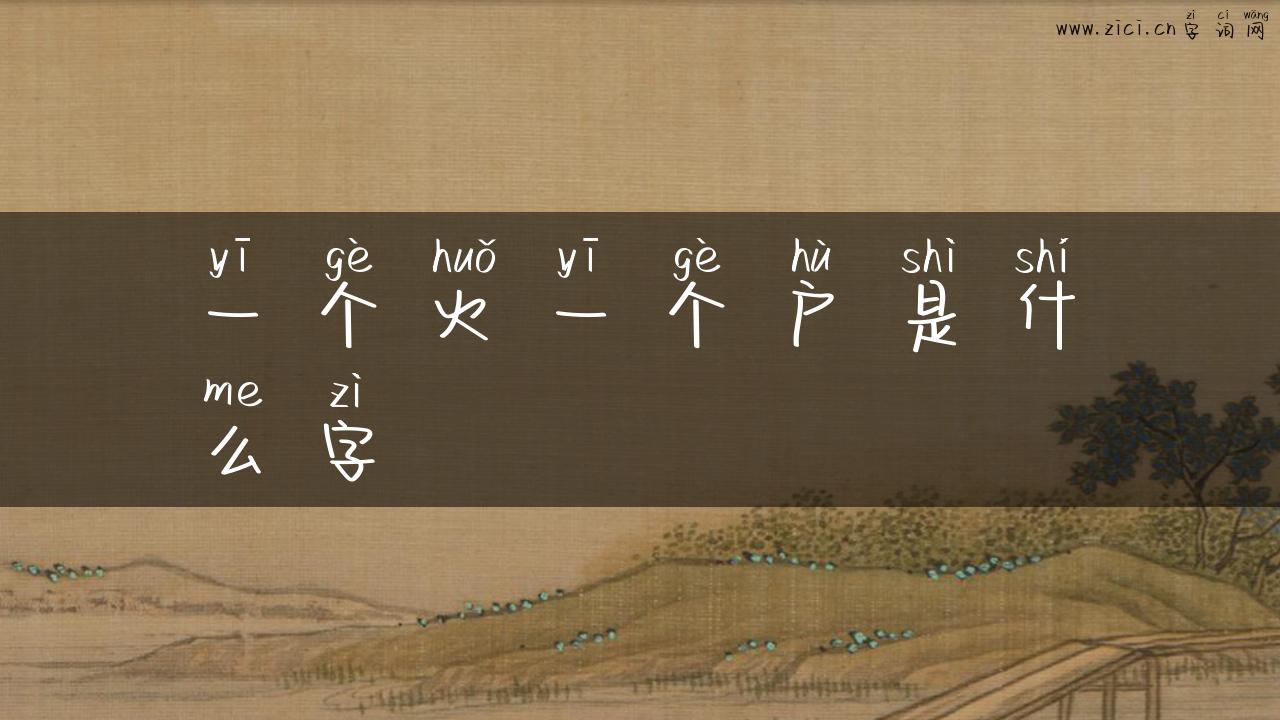 zì cí wǎng
www.zici.cn字词网
yī gè huǒ yī gè hù shì shí
一个火一个户是什
me zì
么字